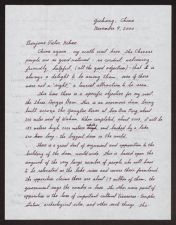 Yichang, China
November 9, 2000
China again, my ninth visit here. The Chinese
people are so good natured - so cordial, welcoming,
friendly, helpful, (all the good adjectives) - that it is
always a delight to be among them, even if there
were not a "sight," a tourist attraction to be seen.
This time there is a specific objective on my visit
the Three Gorges Dam. This is an enormous dam being
built across the Yangtze River at
miles west of Wuhan. When completed, about 2009, it will be
185 meters high, meters and backed by a lake
the biggest dam in the world.
There is a great deal of argument and opposition to the
building of the dam, world wide. This is based upon the
of the very large number of people who will have
to be relocated as the lake rises and covers their farmland
the opposition claims there are about 1.9 million of them, the
government says the number is less. The other main point of
opposition is the loss of important cultural treasures - temples,
statues, archeological sites, and other such things. The